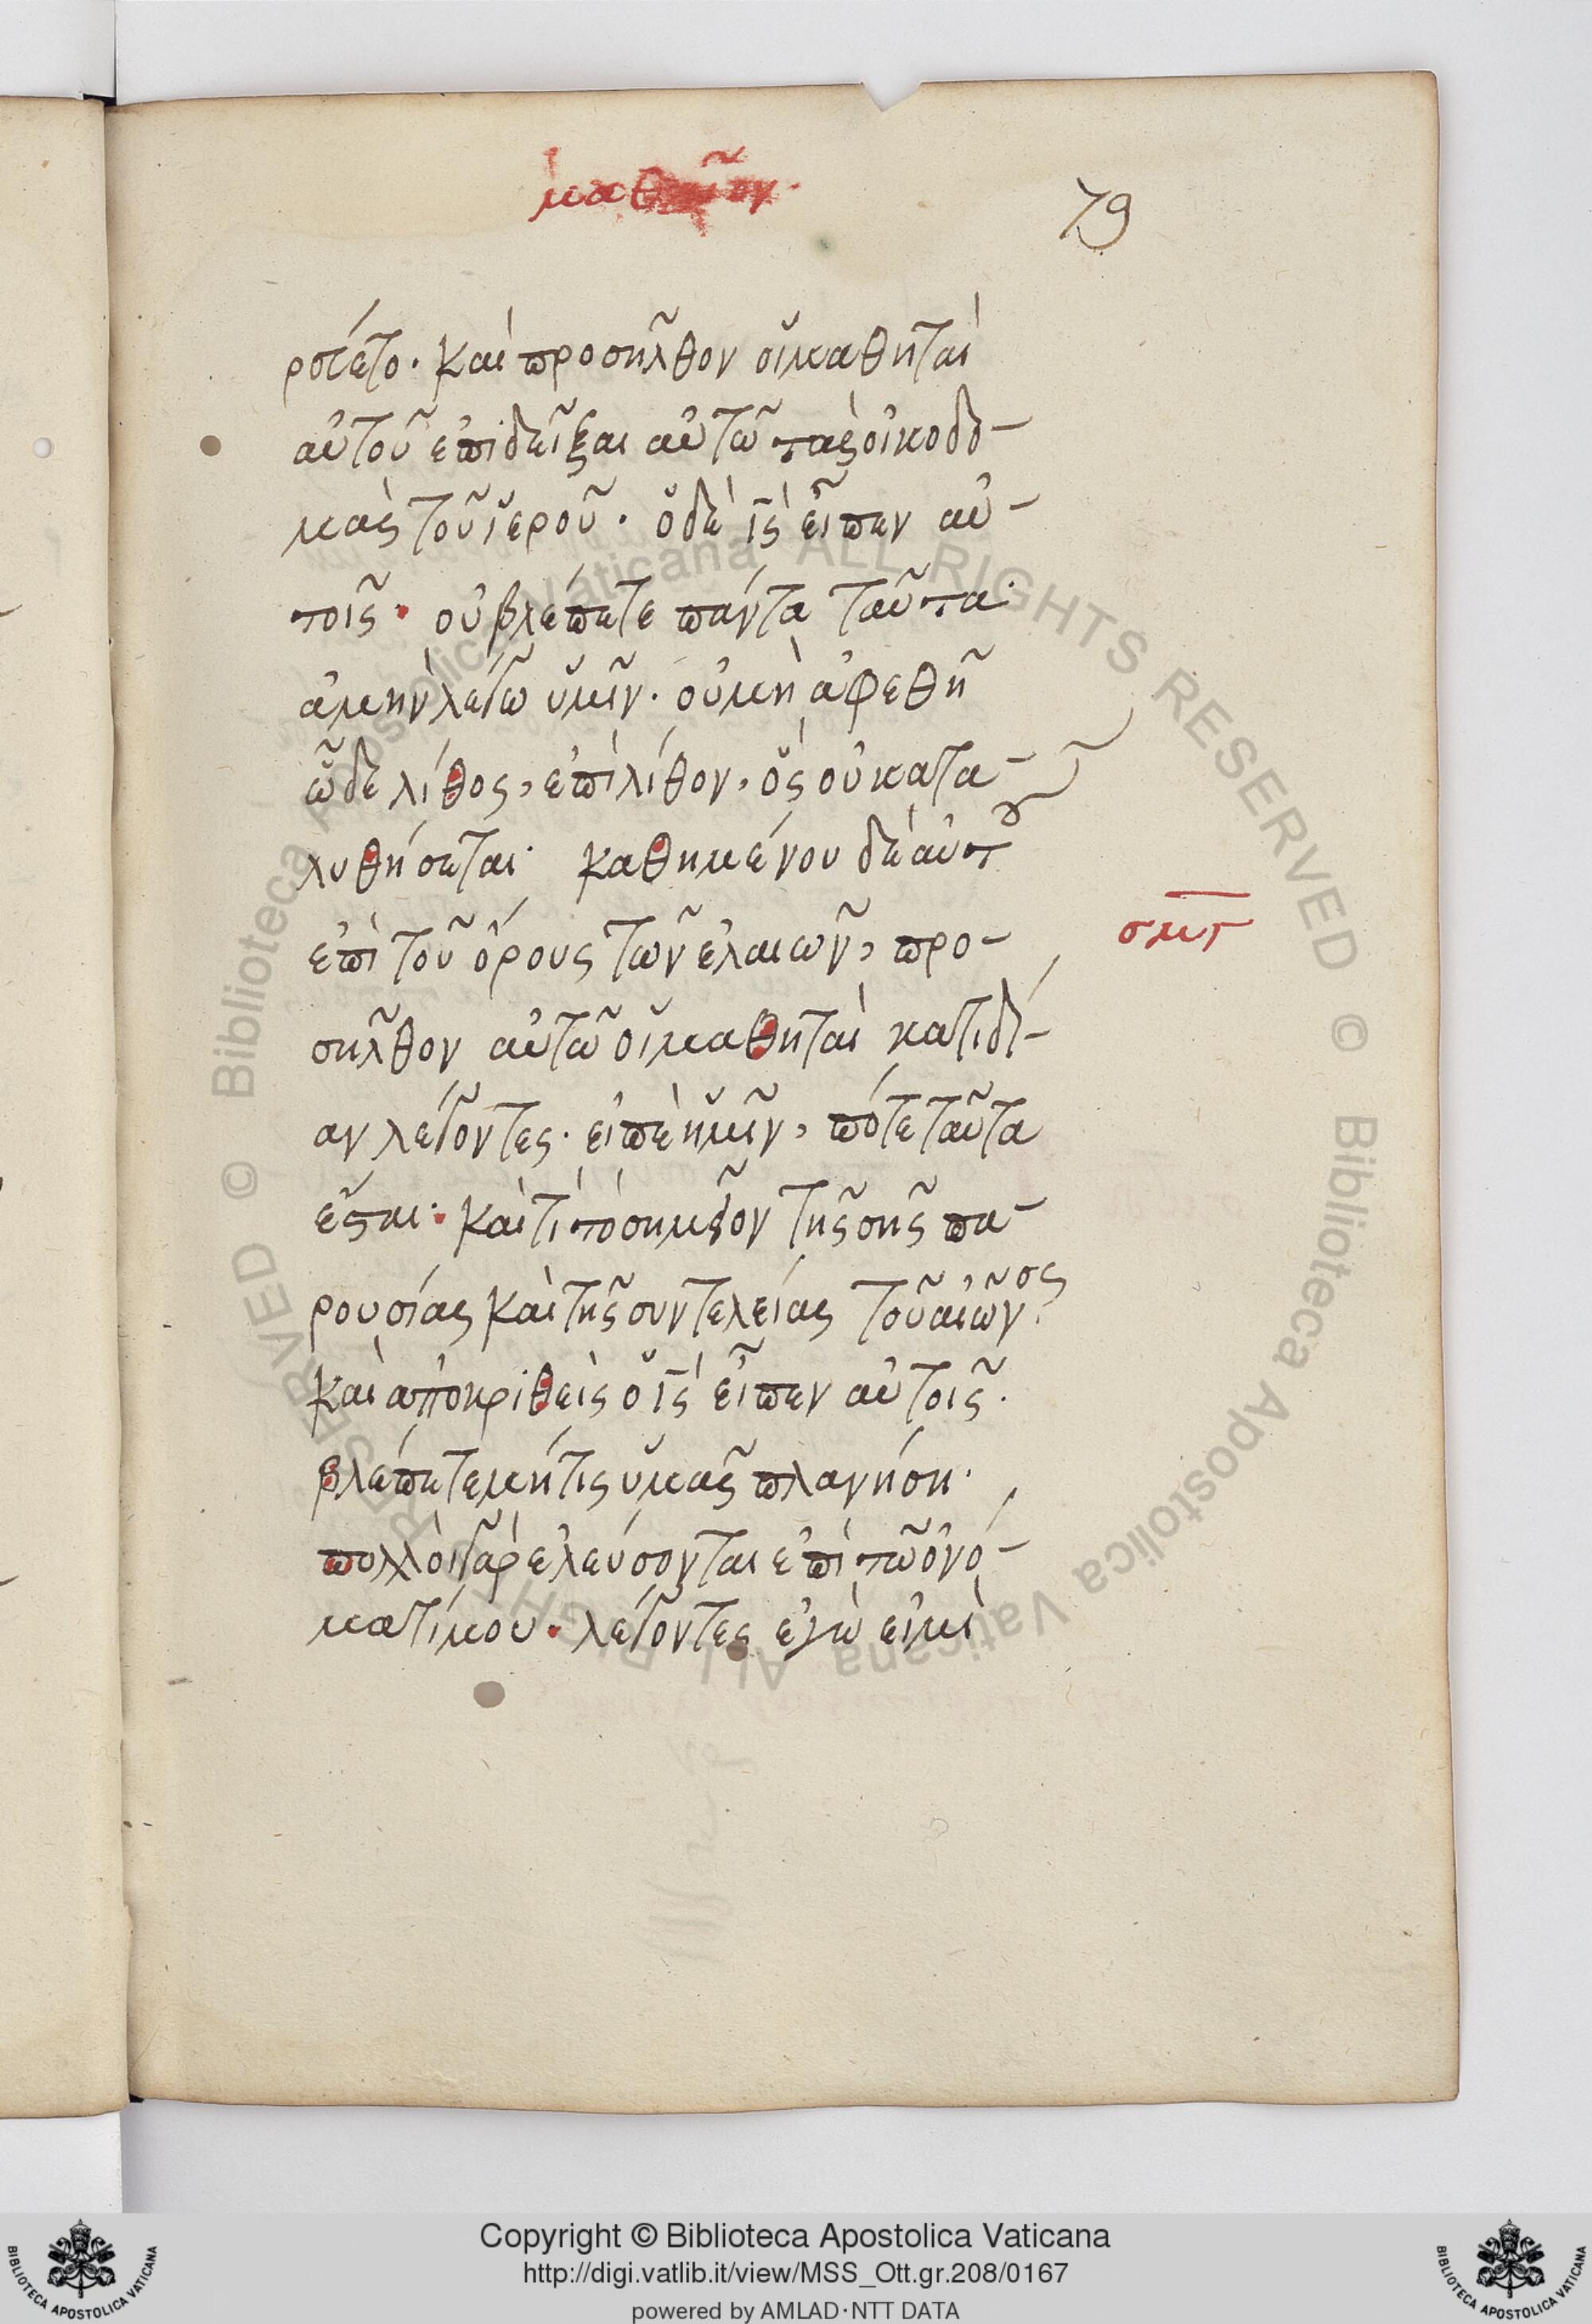 79
ρεύετο· καὶ προσῆλθον οἱ μαθηταὶ
αὐτοῦ ἐπιδεῖξαι αὐτῶ τὰς οἰκοδο-
μὰς τοῦ ἱεροῦ· ὁ δὲ ις εἶπεν αὐ-
τοῖς· οὐ βλέπετε πάντα ταῦτα·
ἀμὴν λέγω ὑμῖν· οὐ μὴ ἀφεθῆ
ὧδε λίθος, ἐπὶ λίθον, ὃς οὐ κατα-
λυθήσεται· καθημένου δὲ αὐτοῦ
ἐπὶ τοῦ ὄρους τῶν ἐλαιῶν, προ-
σῆλθον αὐτῶ οἱ μαθηταὶ κατιδί-
αν λέγοντες· εἰπὲ ἡμῖν, πότε ταῦτα
ἔσται· καὶ τί τὸ σημεῖον τῆς σῆς πα-
ρουσίας καὶ τῆς συντελείας τοῦ αἰῶνος·
καὶ ἀποκριθεὶς ὁ ις εἶπεν αὐτοῖς·
βλέπετε μήτις ὑμᾶς πλανήση·
πολλοὶ γὰρ ἐλεύσονται ἐπὶ τῶ ὀνό-
ματί μου· λέγοντες ἐγώ εἰμι
© Biblioteca Apostolica Vaticana ALL RIGHTS RESERVED © Biblioteca Apostolica Vaticana ALL RIGHTS RESERVED
Copyright © Biblioteca Apostolica Vaticana
http://digi.vatlib.it/view/MSS_Ott.gr.208/0167
powered by AMLAD·NTT DATA
BIBLIOTECA APOSTOLICA VATICANA
BIBLIOTECA APOSTOLICA VATICANA